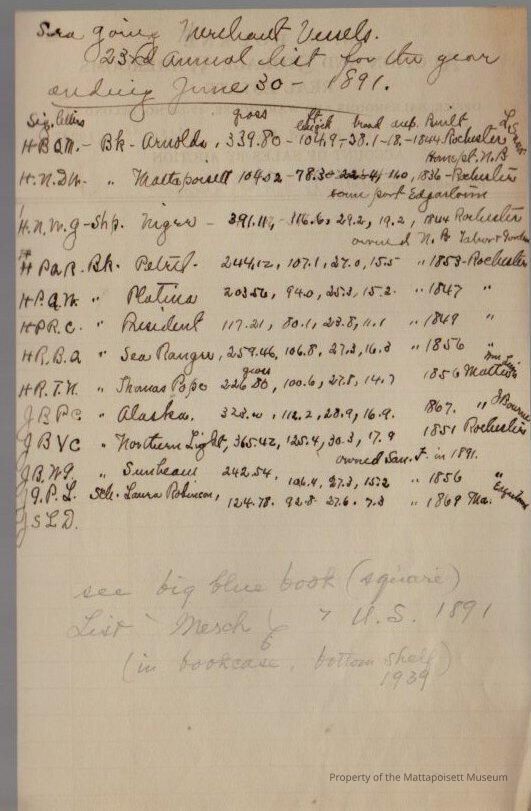 Sea going Merchant Vessels.
23rd Annual list for the year
ending June 30 - 1891.
Sig. letters gross length broad dep. Built
H.B.Q.M. - Bk - Arnolda, 339.80 - 104.9 - 38.1 - 18. - 1844 Rochester
Home pt. N.B
H.N.D. " Mattapoisett 104.32 - 78.30 1836 - Rochester
home port Edgartown
H.N.W.G - Shp. Niger - 391.11, 116.6, 29.2, 19.2, 1844 Rochester
owned N.B Tabor
H P.Q.R. Bk. Petrel. 244.12, 107.1, 27.0, 15.5 " 1853 - Rochester
H P.Q.W. " Platina 203.56, 94.0, 25.3, 15.2 " 1847 "
H P R.C. " President 117.21, 80.1, 23.8, 11.1 " 1849 "
H R.B.Q " Sea Ranger, 259.46, 106.8, 27.3, 16.3 " 1856 "
gross
H R.T.N. " Thomas Pope 226.80, 100.6, 27.8, 14.7 1856
J B P C " Alaska. 112.2, 28.9, 16.9. 1867. " J Bourne
J B V C " Northern Light, 365.42, 125.4, 30.3, 17.9 1851 Rochester
owned San. F. in 1891.
J B.W.G. " Sunbeam 242.54, 106.4, 27.3, 15.2 " 1856 "
J G.P.L. Sch. Laura Robinson, 124.78. 92.8 27.6. 7.3 " 1869 Ma.
J S L D.
see big blue book (square)
List Merch U.S. 1891
(in bookcase, bottom shelf)
1939
Property of the Mattapoisett Museum